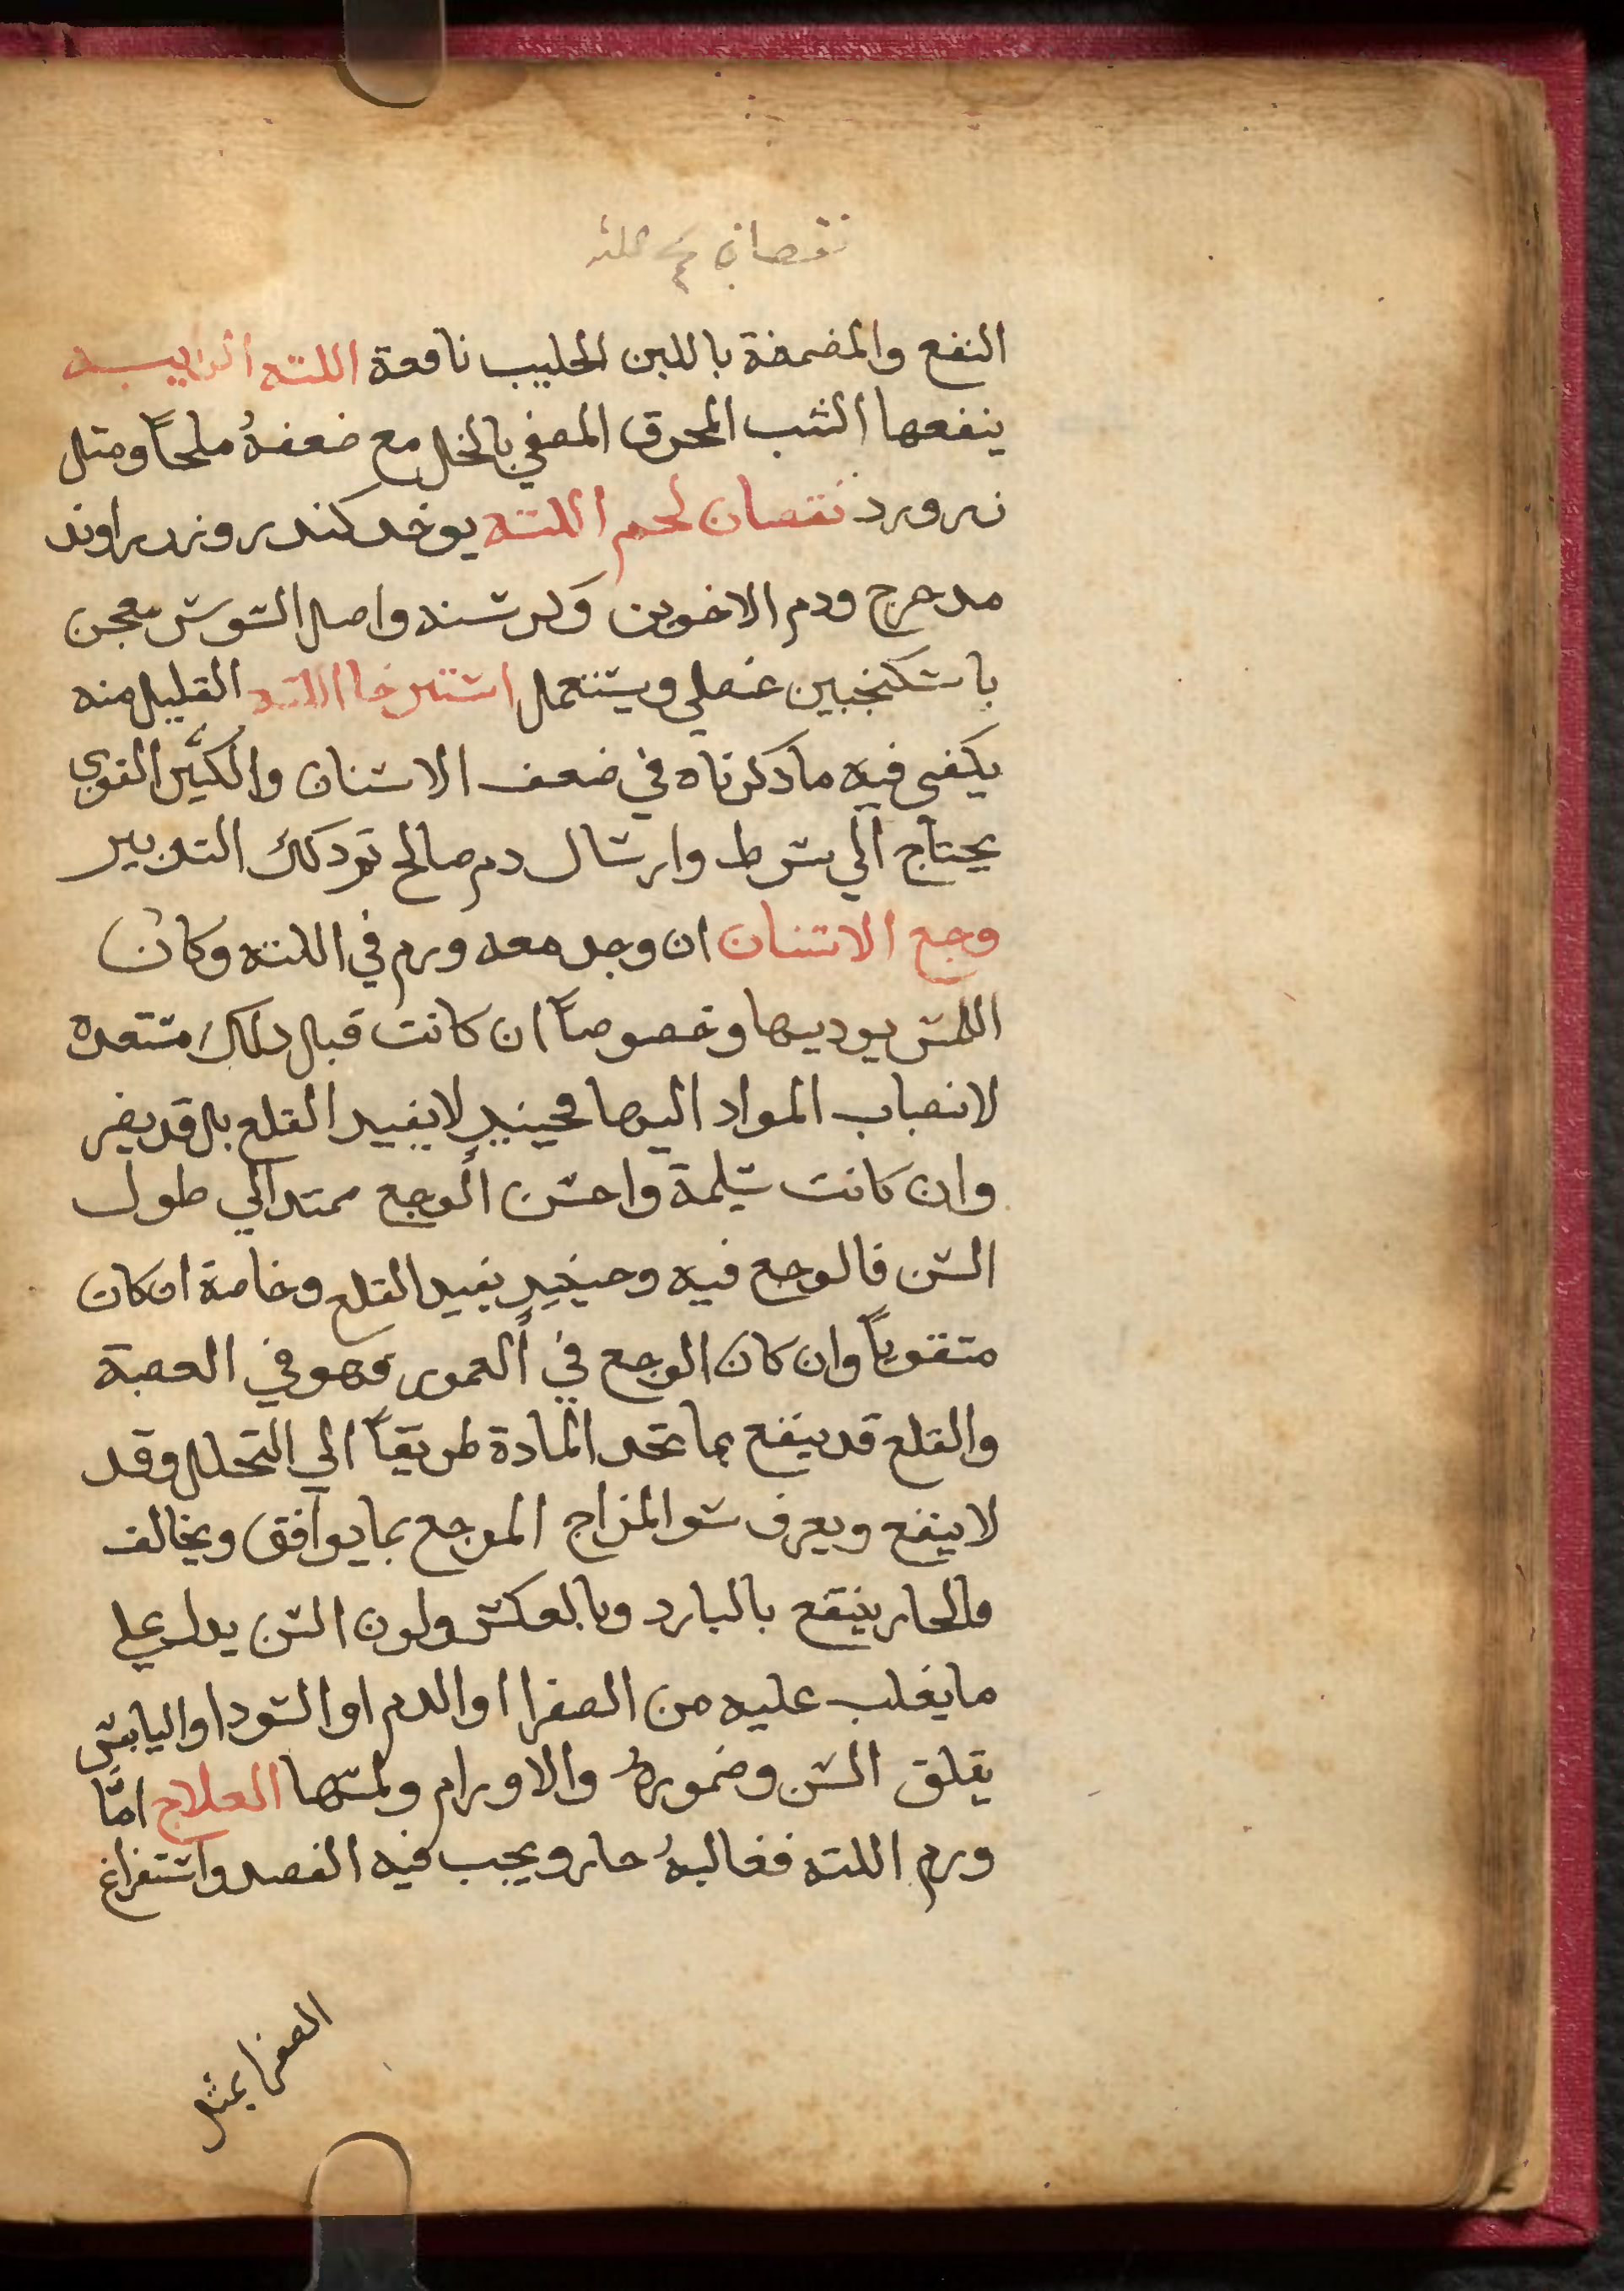 نقصان لحم اللثه
النفع والمضمضة باللبن الحليب نافعة اللثه الداميه
ينفعها الشب المحرق المصفي بالخل مع ضعفهُ ملحاً ومثل
زرورد نقصان لحم اللثه يوخد كندر وزراوند
مدحرج ودم الاخوين وكرشنه واصل السوسن معجن
باسكنجبين عنصلي ويستعمل استرخا اللثه القليل منه
يكفي فيه ما دكرناه في ضعف الاسنان والكثير القوي
يحتاج الي شرط وارسال دم صالح تم دلك التدبير
وجع الاسنان ان وجد معه ورم في اللثه وكان
اللمس يوديها وخصوصاً ان كانت قبل دلك مستعده
لانصباب المواد اليها فحينيدٍ لا يفيد القلع بل قد يضر
وان كانت سليمة واحسن الوجع ممتد الي طول
السن فالوجع فيه وحينيدٍ يفيد القلع وخاصة ان كان
متقوباً وان كان الوجع في العمور فهو في العصبة
والقلع قد ينفع بما تجد المادة طريقاً الي التحلل وقد
لا ينفع ويعرف سو المزاج الموجع بما يوافق ويخالف
فالحار ينتفع بالبارد وبالعكس ولون السن يدل علي
ما يغلب عليه من الصفرا او الدم او السودا واليابس
يقلق السن وضمورهُ والاورام ولمسها العلاج امّا
ورم اللثه فغالبهُ حار ويجب فيه الفصد واستفراغ
الصفرا بمثل